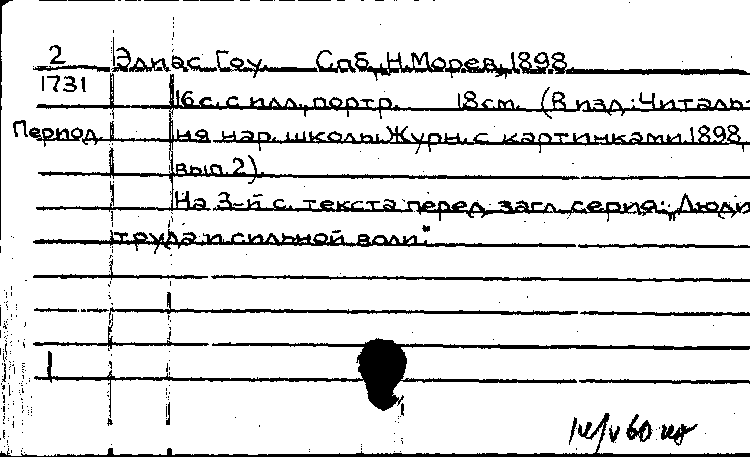 2 Элиас Гоу. Спб., Н. Морев, 1898.
1731
16 с. с илл., портр. 18 см. (В изд.: Читаль-
Период. ня нар. школы. Журн. с картинками. 1898,
вып. 2).
На 3-й с. текста перед загл. серия: „Люди
труда и сильной воли".
1